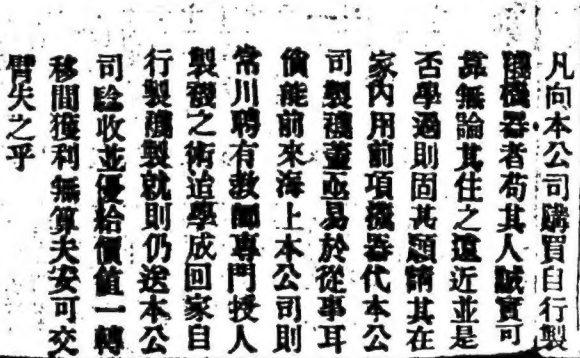 凡向本公司購買自行製
襪機器者苟其人誠實可
靠無論其住之遠近並是
否學過則固甚願請其在
家內用前項機器代本公
司製襪蓋亟易於從事耳
倘能前來海上本公司則
常川聘有教師專門授人
製襪之術迨學成回家自
行製襪製就則仍送本公
司驗收並優給價值一轉
移間獲利無算夫安可交
臂失之乎